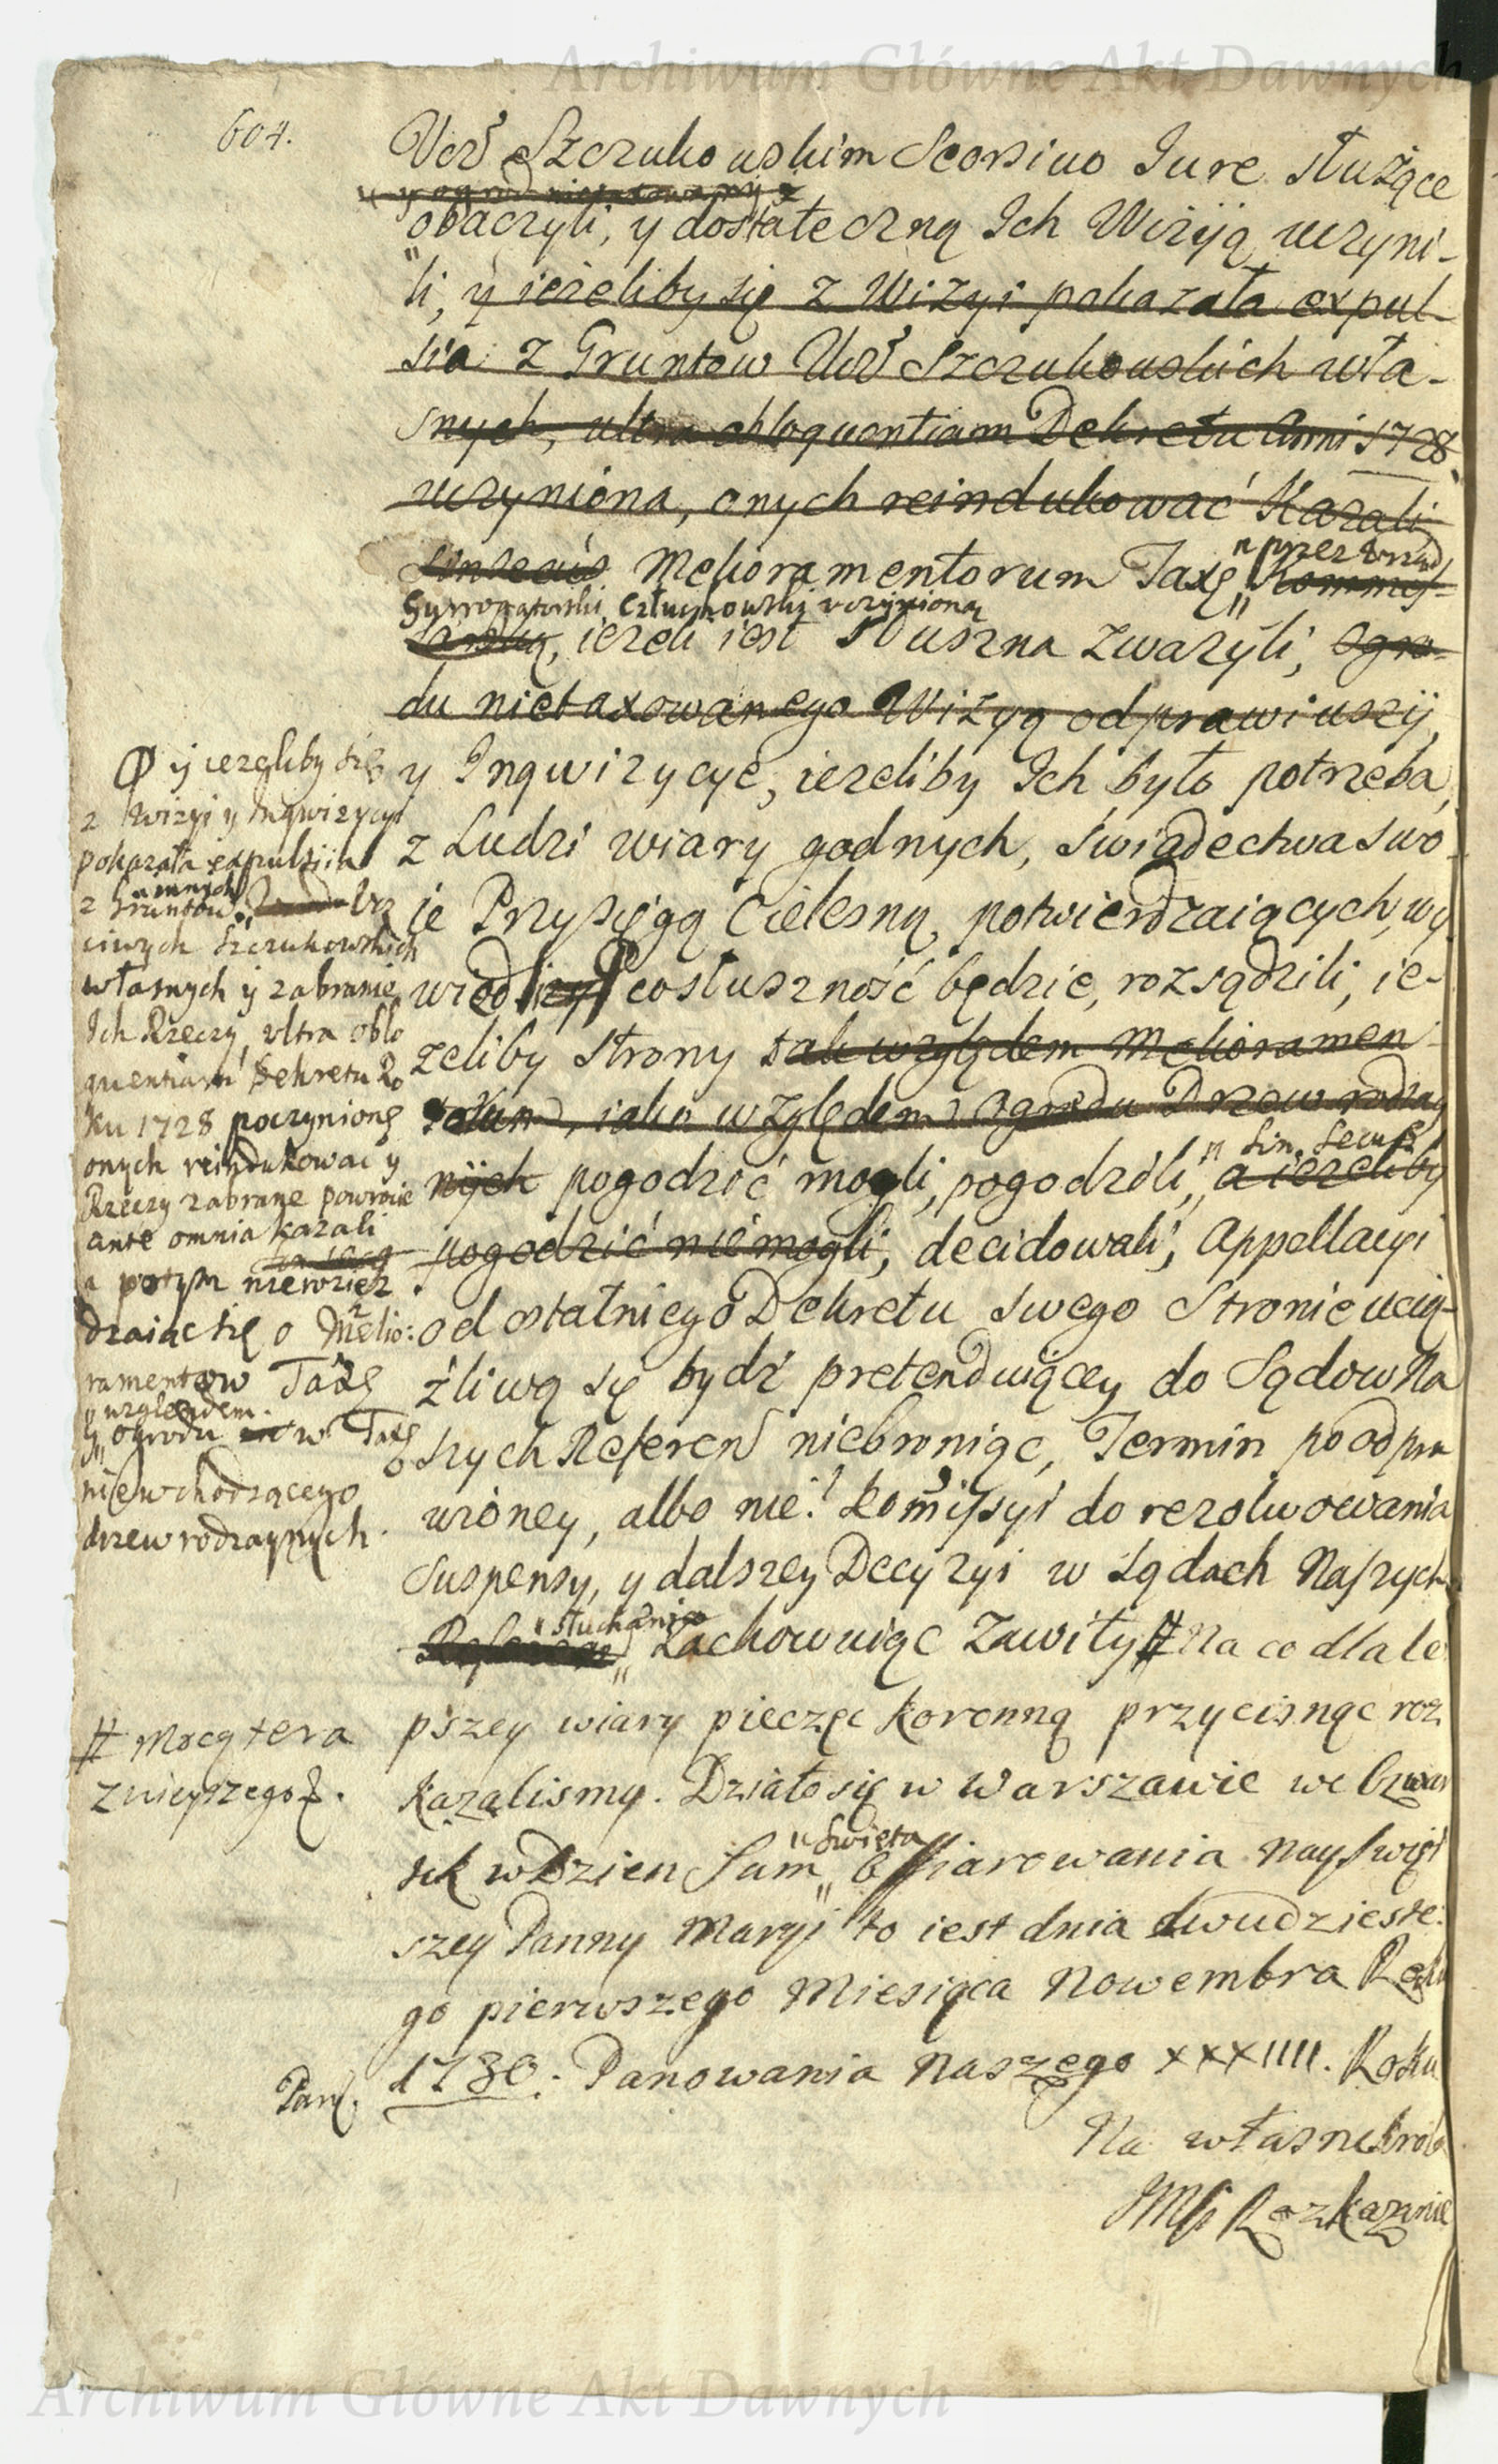 Archiwum Główne Akt Dawnych
604.
Urod Szczukowskim Scorsivo Jure służące
y ogrod nietaxowany
obaczyli, y dostateczną Ich Wizyją uczyni-
li, y ieżeliby się z Wizyi pokazała expul-
sia z Gruntow Urod Szczukowskich wła-
snych, ultra obloquentiam Dekretu Anni 1728.
uczyniona, onych reindukować Kazali
sinsecus Melioramentorum Taxę, Kommis-
przez Urząd
Surrogatorski Człuchowski uczynioną
ieżeli iest słuszna zważyli, Ogro-
du nietaxowanego Wizyą odprawiwszy,
y Inqwizycye, ieżeliby Ich było potrzeba,
z Ludzi wiary godnych, swiadectwa swo
ie Przysięgą Cielesną potwierdzaiących, wy
wiedli co słuszność będzie, rozsądzili, ie-
żeliby strony tak względem Melioramen-
torum, iako względem Ogrodu Drzew rodzay
nych pogodzić mogli, pogodzili, a ieżeliby
Sin. Secus
pogodzić nie mogli, decidowali, Appellacyi
od ostatniego Dekretu swego Stronie ucią-
żliwą się bydź pretenduiącey do Sądow Na
szych Referen niebroniąc, Termin po odpra
wioney, albo nie? Komissyi do rezolwowania
Suspensy, y dalszey Decyzyi w Sądach Naszych
słuchania
Zachowuiąc Zawity # Na co dla le
pszey wiary pieczęc Koronną przycisnąc roz
kazalismy. Działo się w Warszawie we Czwar
tek w Dzien Sam Offiarowania Nayswięt
Swięta
szey Panny Maryi to iest dnia dwudzieste:
go pierwszego Miesiąca Nowembra Roku
1730. Panowania Naszego XXXIIII. Roku
Na własne Krola
JMci Rozkazanie
y ieżeliby się
z Wizyi y Inqwizycyi
pokazała expulsiia
z Gruntow Urz
innych
ciwych Szczukowskich
własnych y zabranie
Ich Rzeczy, ultra oblo
quentiam Dekretu Ro
ku 1728 poczynione
onych reindukować y
Rzeczy zabrane powrocic
ante omnia kazali
a potym niewzież
dzaiąc się o Melio:
ramentow Taxę
względem
y ogrodu w Taxę
niewchodzącego
drzew rodzaynych.
# Mocą tera
znieyszego.
Parl.
Archiwum Główne Akt Dawnych